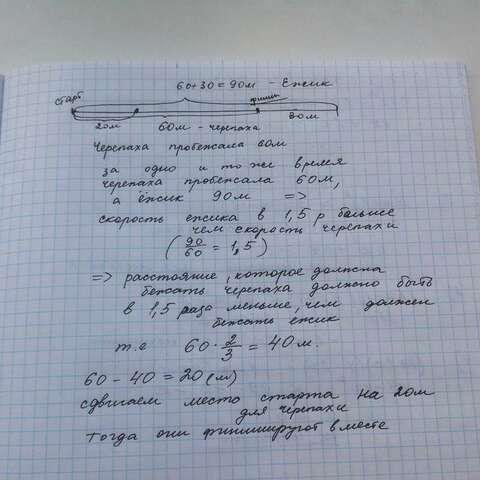 60+30=90м - Ежик
старт
финиш
20м
60м - черепаха
30м
Черепаха пробежала 60м
за одно и то же время
черепаха пробежала 60м,
а ёжик 90м =>
скорость ежика в 1,5 р больше
чем скорость черепахи
( 90/60 = 1,5 )
=> расстояние, которое должна
бежать черепаха должно быть
в 1,5 раза меньше, чем должен
бежать ежик
т.е 60 · 2/3 = 40 м.
60 - 40 = 20 (м)
сдвигаем место старта на 20м
для черепахи
тогда они финишируют вместе